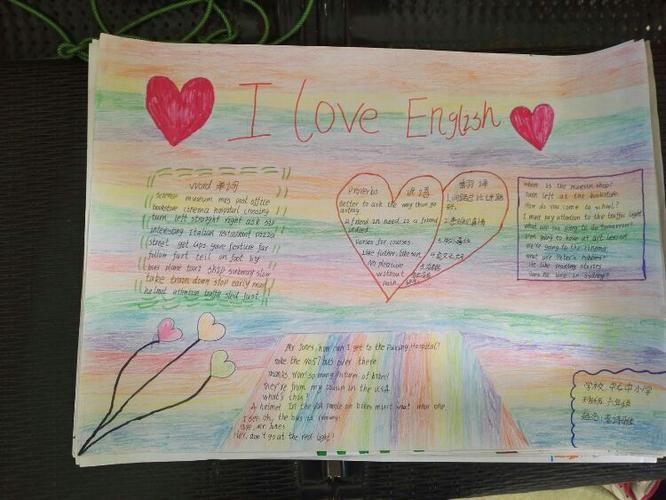 I love English
Word 单词
science museum map post office
bookstore cinema hospital crossing
turn left straight right ask sir
interesting Italian restaurant pizza
street get gps gave feature far
follow fort tell on foot by
bus plane taxi ship subway slow
take train down stop early must
helmet attention traffic sled fast
Proverbs 谚语
Better to ask the way than go
astray
A friend in need is a friend
indeed
Horses for courses.
Like father, like son.
No pleasure
without
pain.
翻译
where is the museum shop?
Turn left at the bookstore.
How do you come to school?
I must pay attention to the traffic light
what are you going to do tomorrow?
I'm going to have an art lesson
We're going to the cinema
what are Peter's hobbies?
He like reading stories
Does he live in Sydney?
Mr Jones, how can I get to the Fuxing Hospital?
take the No.57 bus over there
thanks wow so many pictures of bikes!
they're from my cousin in the USA
what's this?
A helmet In the USA people on bikes must wear one
I see oh, the bus is coming!
bye, Mr Jones
Hey, don't go at the red light!
学校:
小学
班级:六年级
姓名: